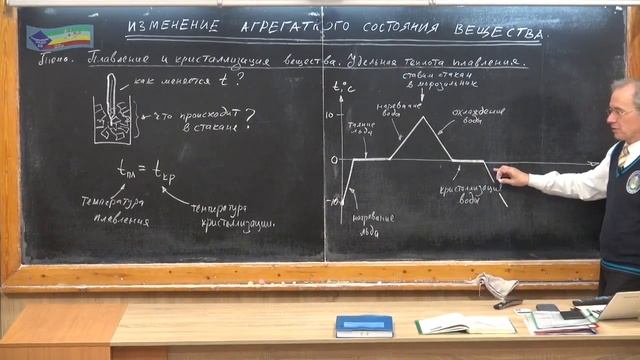 ИЗМЕНЕНИЕ АГРЕГАТНОГО СОСТОЯНИЯ ВЕЩЕСТВА.
Тема. Плавление и кристаллизация вещества. Удельная теплота плавления.
как меняется t?
что происходит
в стакане?
tпл = tкр
температура
плавления
температура
кристаллизации.
ставим стакан
в морозильник
t,°C
10
0
-10
нагревание
воды
охлаждение
воды
таяние
льда
кристаллизация
воды
нагревание
льда